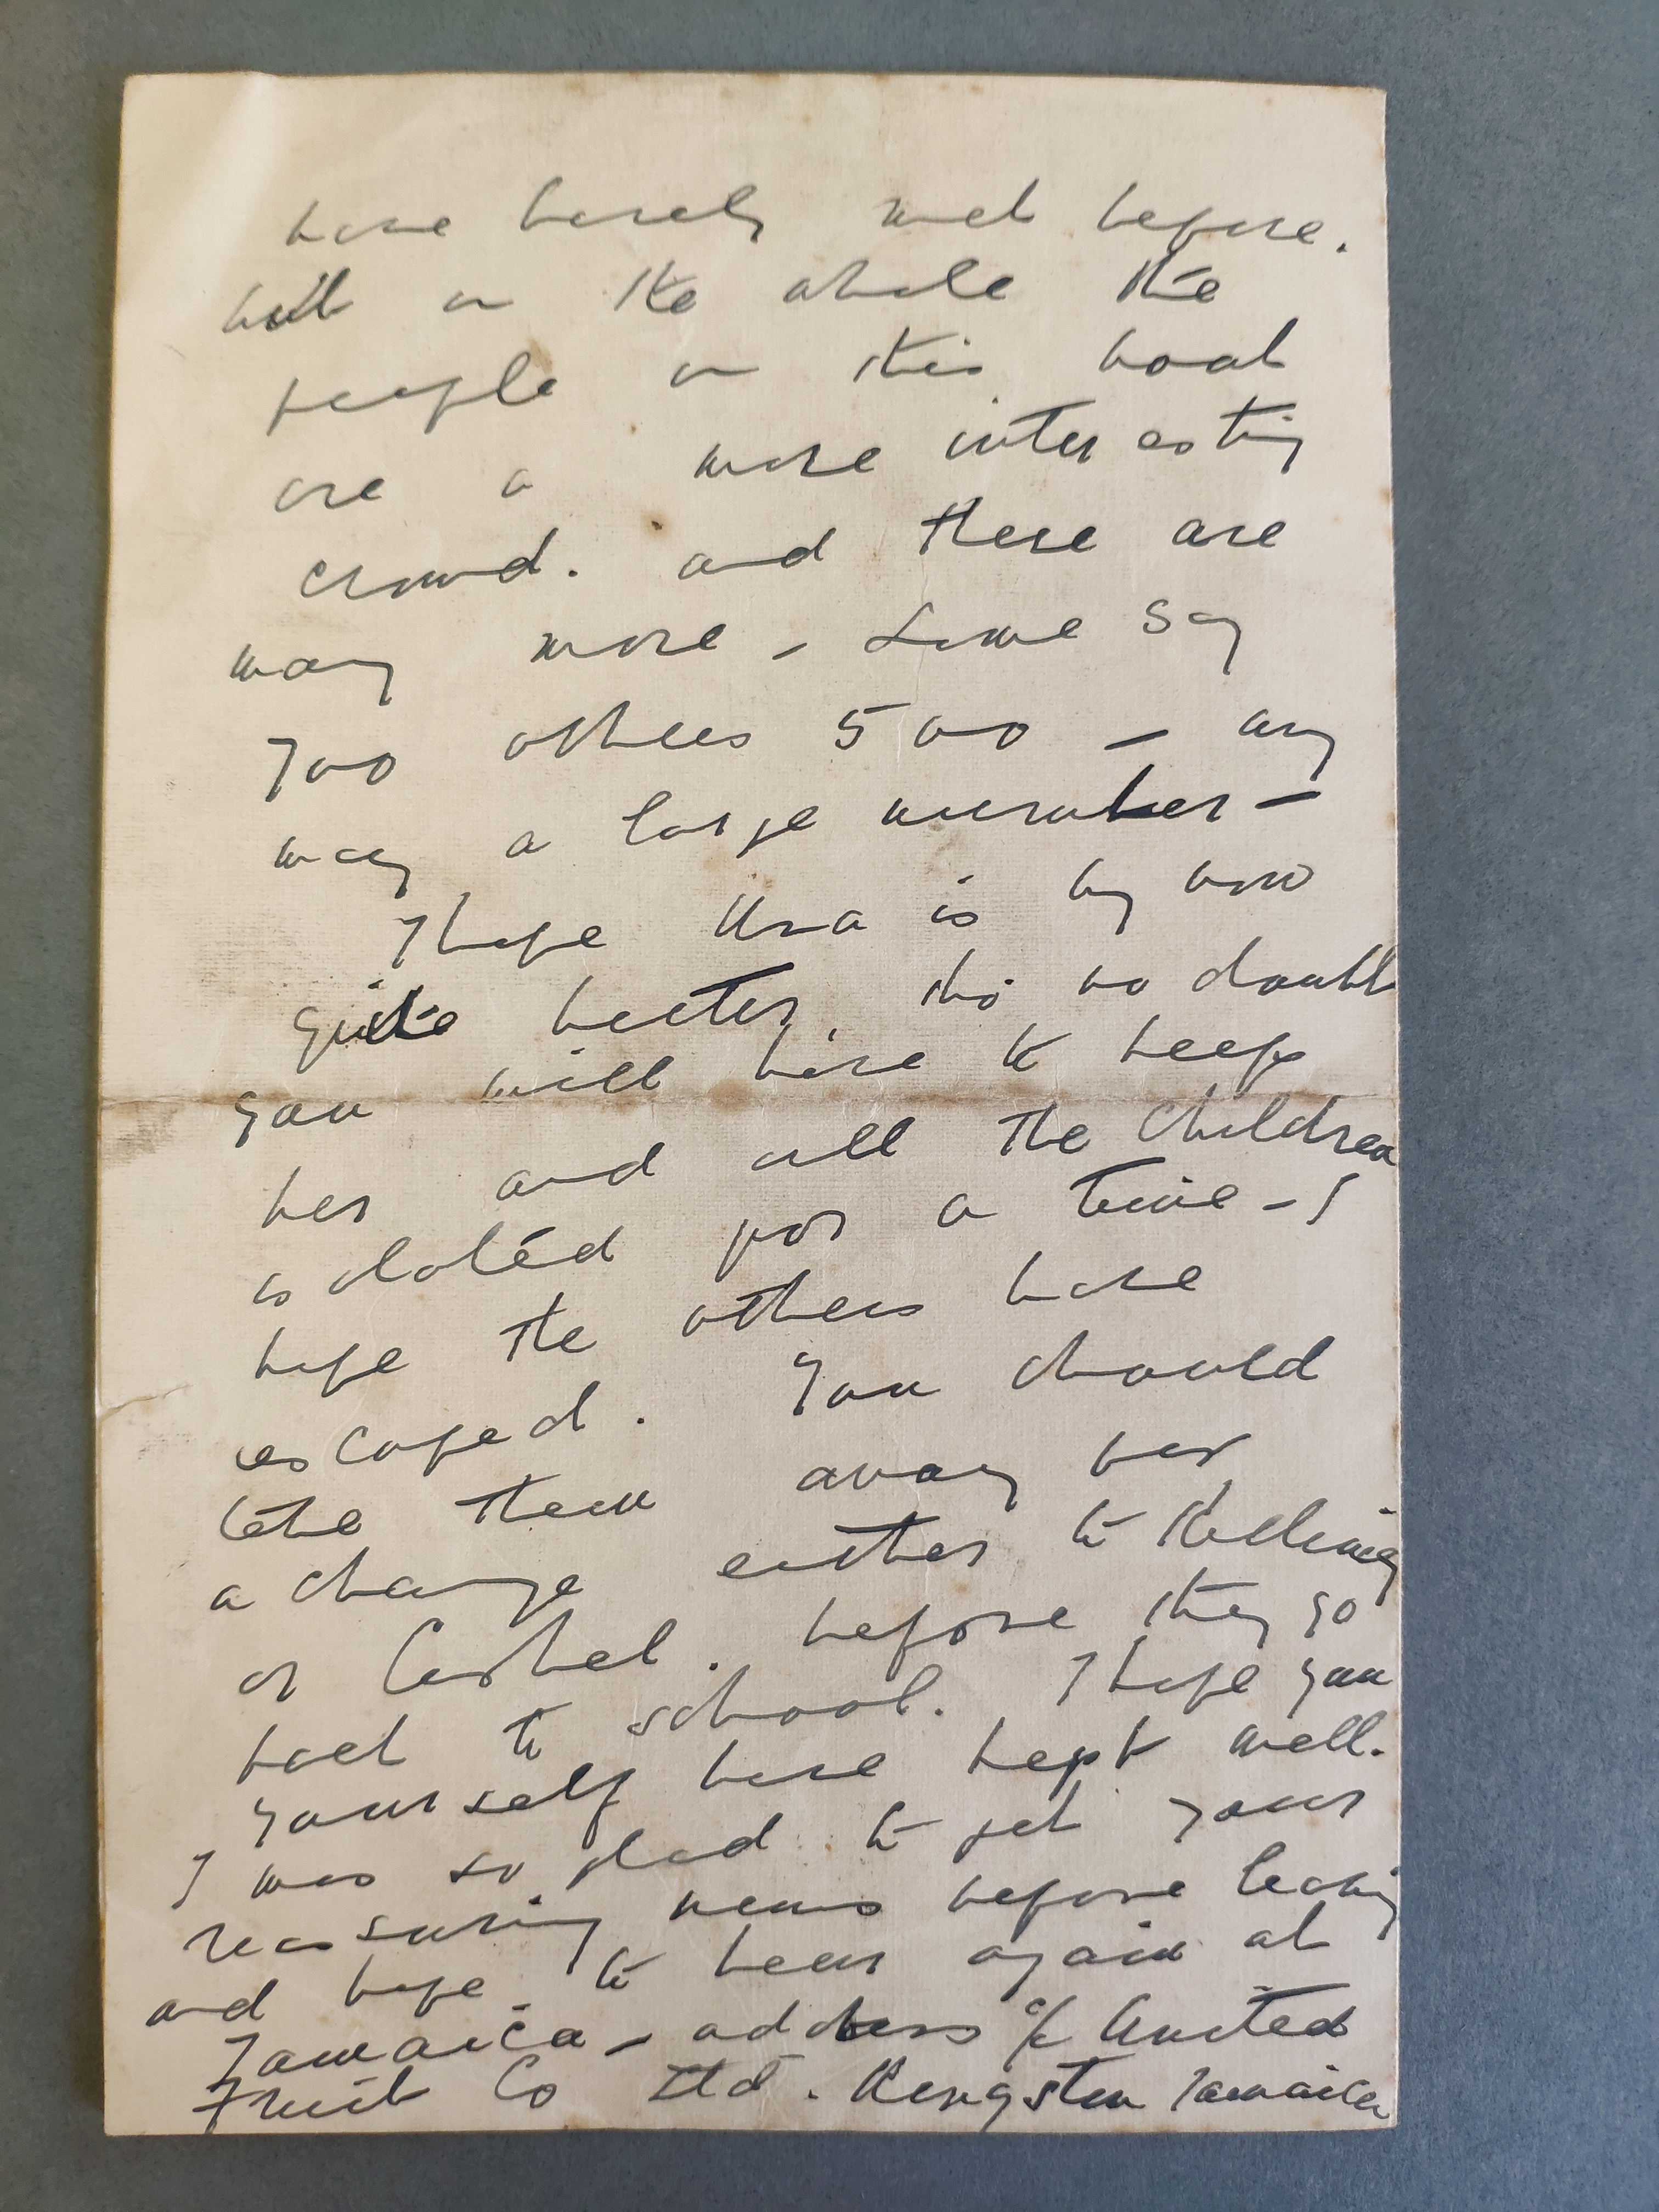 have barely met before.
but on the whole the
people on this boat
are a more interesting
crowd. and there are
many more - some say
700 others 500 - any
way a large number -
I hope Una is by now
quite better, tho' no doubt
you will have to keep
her and all the children
isolated for a time - I
hope the others have
escaped. You should
take them away for
a change either to Killiney
or Cashel. before they go
back to school. I hope you
yourself have kept well.
I was so glad to get your
reassuring news before leaving
and hope to hear again at
Jamaica - address c/o United
Fruit Co Ltd. Kingston Jamaica